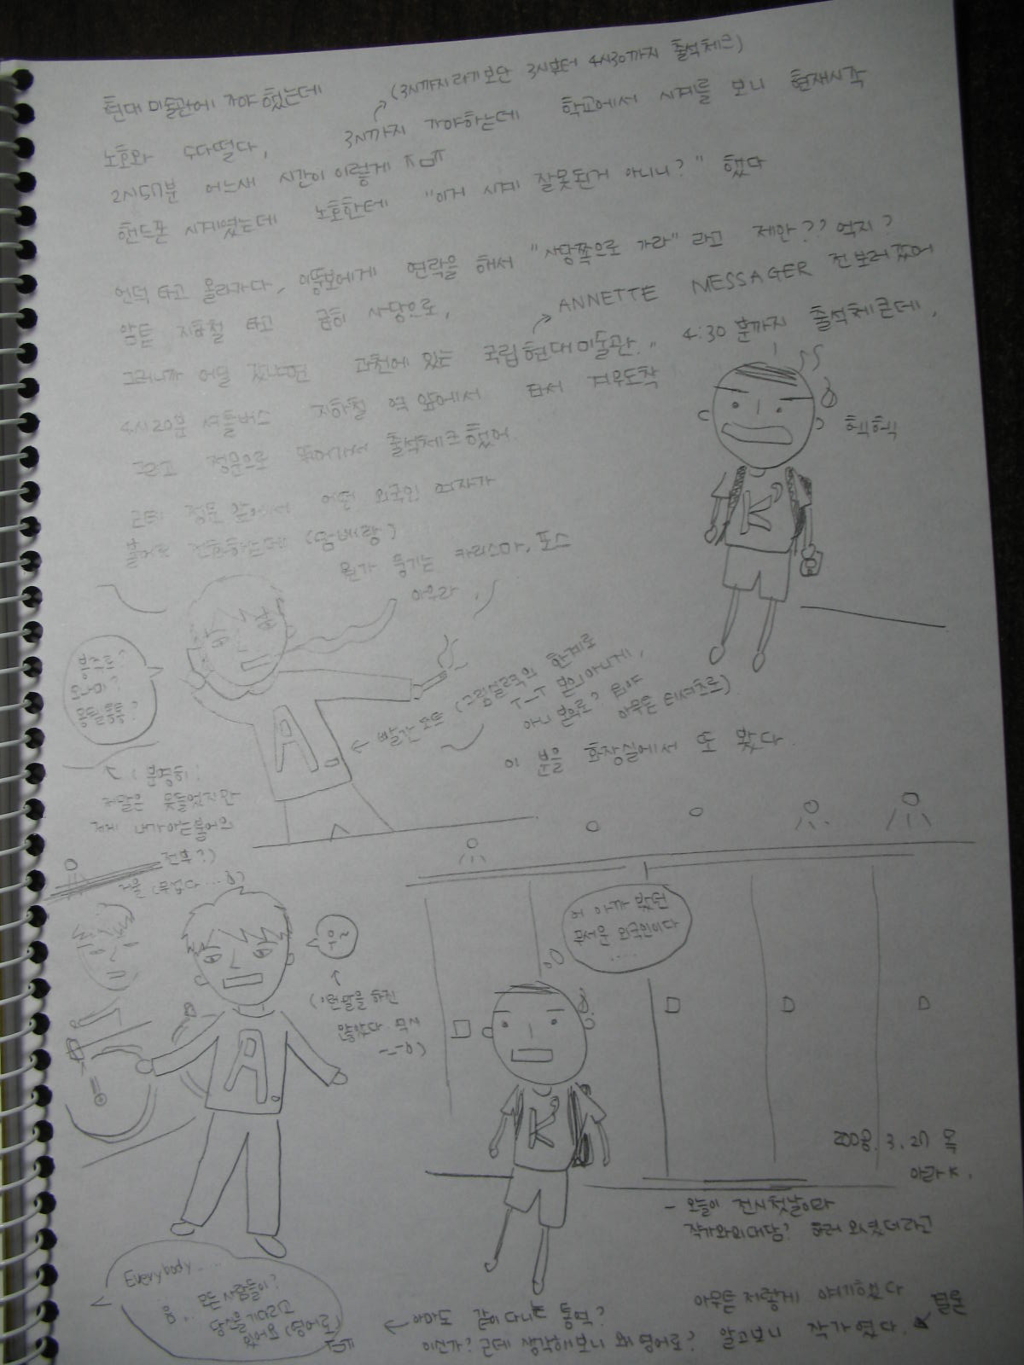 현대 미술관에 가야 했는데 (3시까지라기보단 3시부터 4시30까지 출석체크)
노효와 수다떨다, 3시까지 가야하는데 학교에서 시계를 보니 현재시각
2시57분 어느새 시간이 이렇게 ㅠㅁㅠ
핸드폰 시계였는데 노효한테 "이거 시계 잘못된거 아니니?" 했다
언덕 타고 올라가다, 이뚱보에게 연락을 해서 "사당쪽으로 가라" 라고 제안?? 억지?
암튼 지하철 타고 급히 사당으로, ANNETTE MESSAGER 전 보러갔어
그러니까 어딜 갔냐면 과천에 있는 국립현대미술관.. 4:30분까지 출석체큰데,
4시20분 셔틀버스 지하철 역 앞에서 타서 겨우도착
그리고 정문으로 뛰어가서 출석체크했어.
헥헥
근데 정문 앞에서 어떤 외국인 여자가
불어로 전화하는데 (담배랑)
뭔가 풍기는 카리스마, 포스
아우라,
K
봉쥬르?
A
← 빨간코트 (그림실력의 한계로
ㅜㅡㅜ 본의아니게,
아니 본의로?
아무튼 티셔츠로)
이 분을 화장실에서 또 봤다
(분명히
저말은 못들었지만
저게 내가아는불어의
전부?)
거울 (무섭다 …)
우~
A
어 아까 봤던
무서운 외국인이다
....
K
2008. 3. 27 목
아라K.
- 오늘이 전시첫날이라
작가와의대담? 하러 오셨더라고
Everybody....
음.. 모든 사람들이?
당신을 기다리고
있어요 (영어로)
← 아마도 같이다니는 통역? 아무튼 저렇게 얘기했다
이신가? 근데 생각해보니 왜 영어로? 알고보니 작가였다.